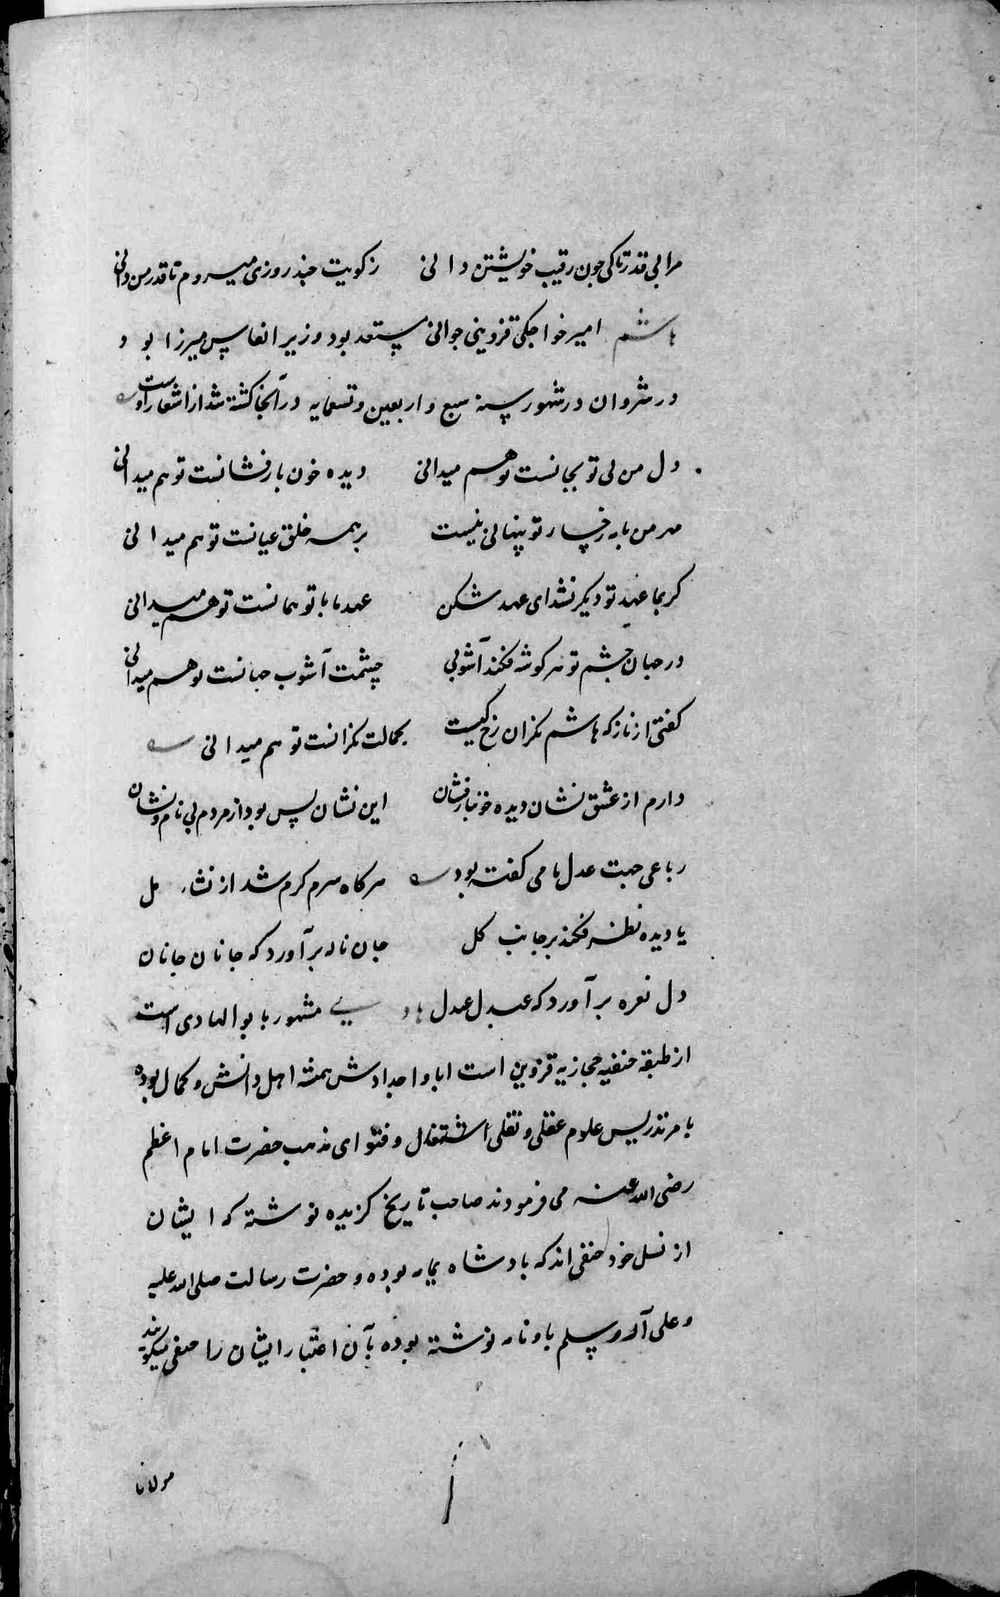 مرا بی قدر تا کی چون رقیب خویشتن دانی ز کویت چند روزی میروم تا قدر من دانی
هاشم امیر خواجکی قزوینی جوانی مستعد بود وزیر القاس میرزا بود و
در شروان در شهور سنه سبع و اربعین و تسعمایه در آنجا کشته شد از اشعار اوست
دل من بی تو بجانست تو هم میدانی دیده خون بار فشانست تو هم میدانی
مهر من با مه رخسار تو پنهانی نیست بر همه خلق عیانست تو هم میدانی
کر بجا عهد تو دیکر نشد ای عهد شکن عهد ما با تو همانست تو هم میدانی
در جهان چشم تو هر کوشه فکند آشوبی چشمت آشوب جهانست تو هم میدانی
کفتی از ناز که هاشم نکران رخ کیست بجمالت نکرانست تو هم میدانی
دارم از عشق نشان دیده خونبار فشان این نشان بس بود از مردم بی نام و نشان
رباعی جهت عدل نامی کفته بود هر کاه سرم کرم شد از نشاء مل
یا دیده نظر فکند بر جانب کل جان ناله بر آورد که جانان جانان
دل نعره بر آورد که عدل عدل هادی مشهور بابو الهادی است
از طبقه حنفیه حجازیه قزوین است ابا و اجدادش همشه اهل دانش و کمال بوده
بامر تدریس علوم عقلی و نقلی اشتغال و فتوای مذهب حضرت امام اعظم
رضی الله عنه می فرمودند صاحب تاریخ کزیده نوشته که ایشان
از نسل خود حنفی اند که بادشاه یمامه بوده و حضرت رسالت صلی الله علیه
و علی آله و سلم باو نامه نوشته بوده بآن اعتبار ایشان را حنفی میکویند
مولانا